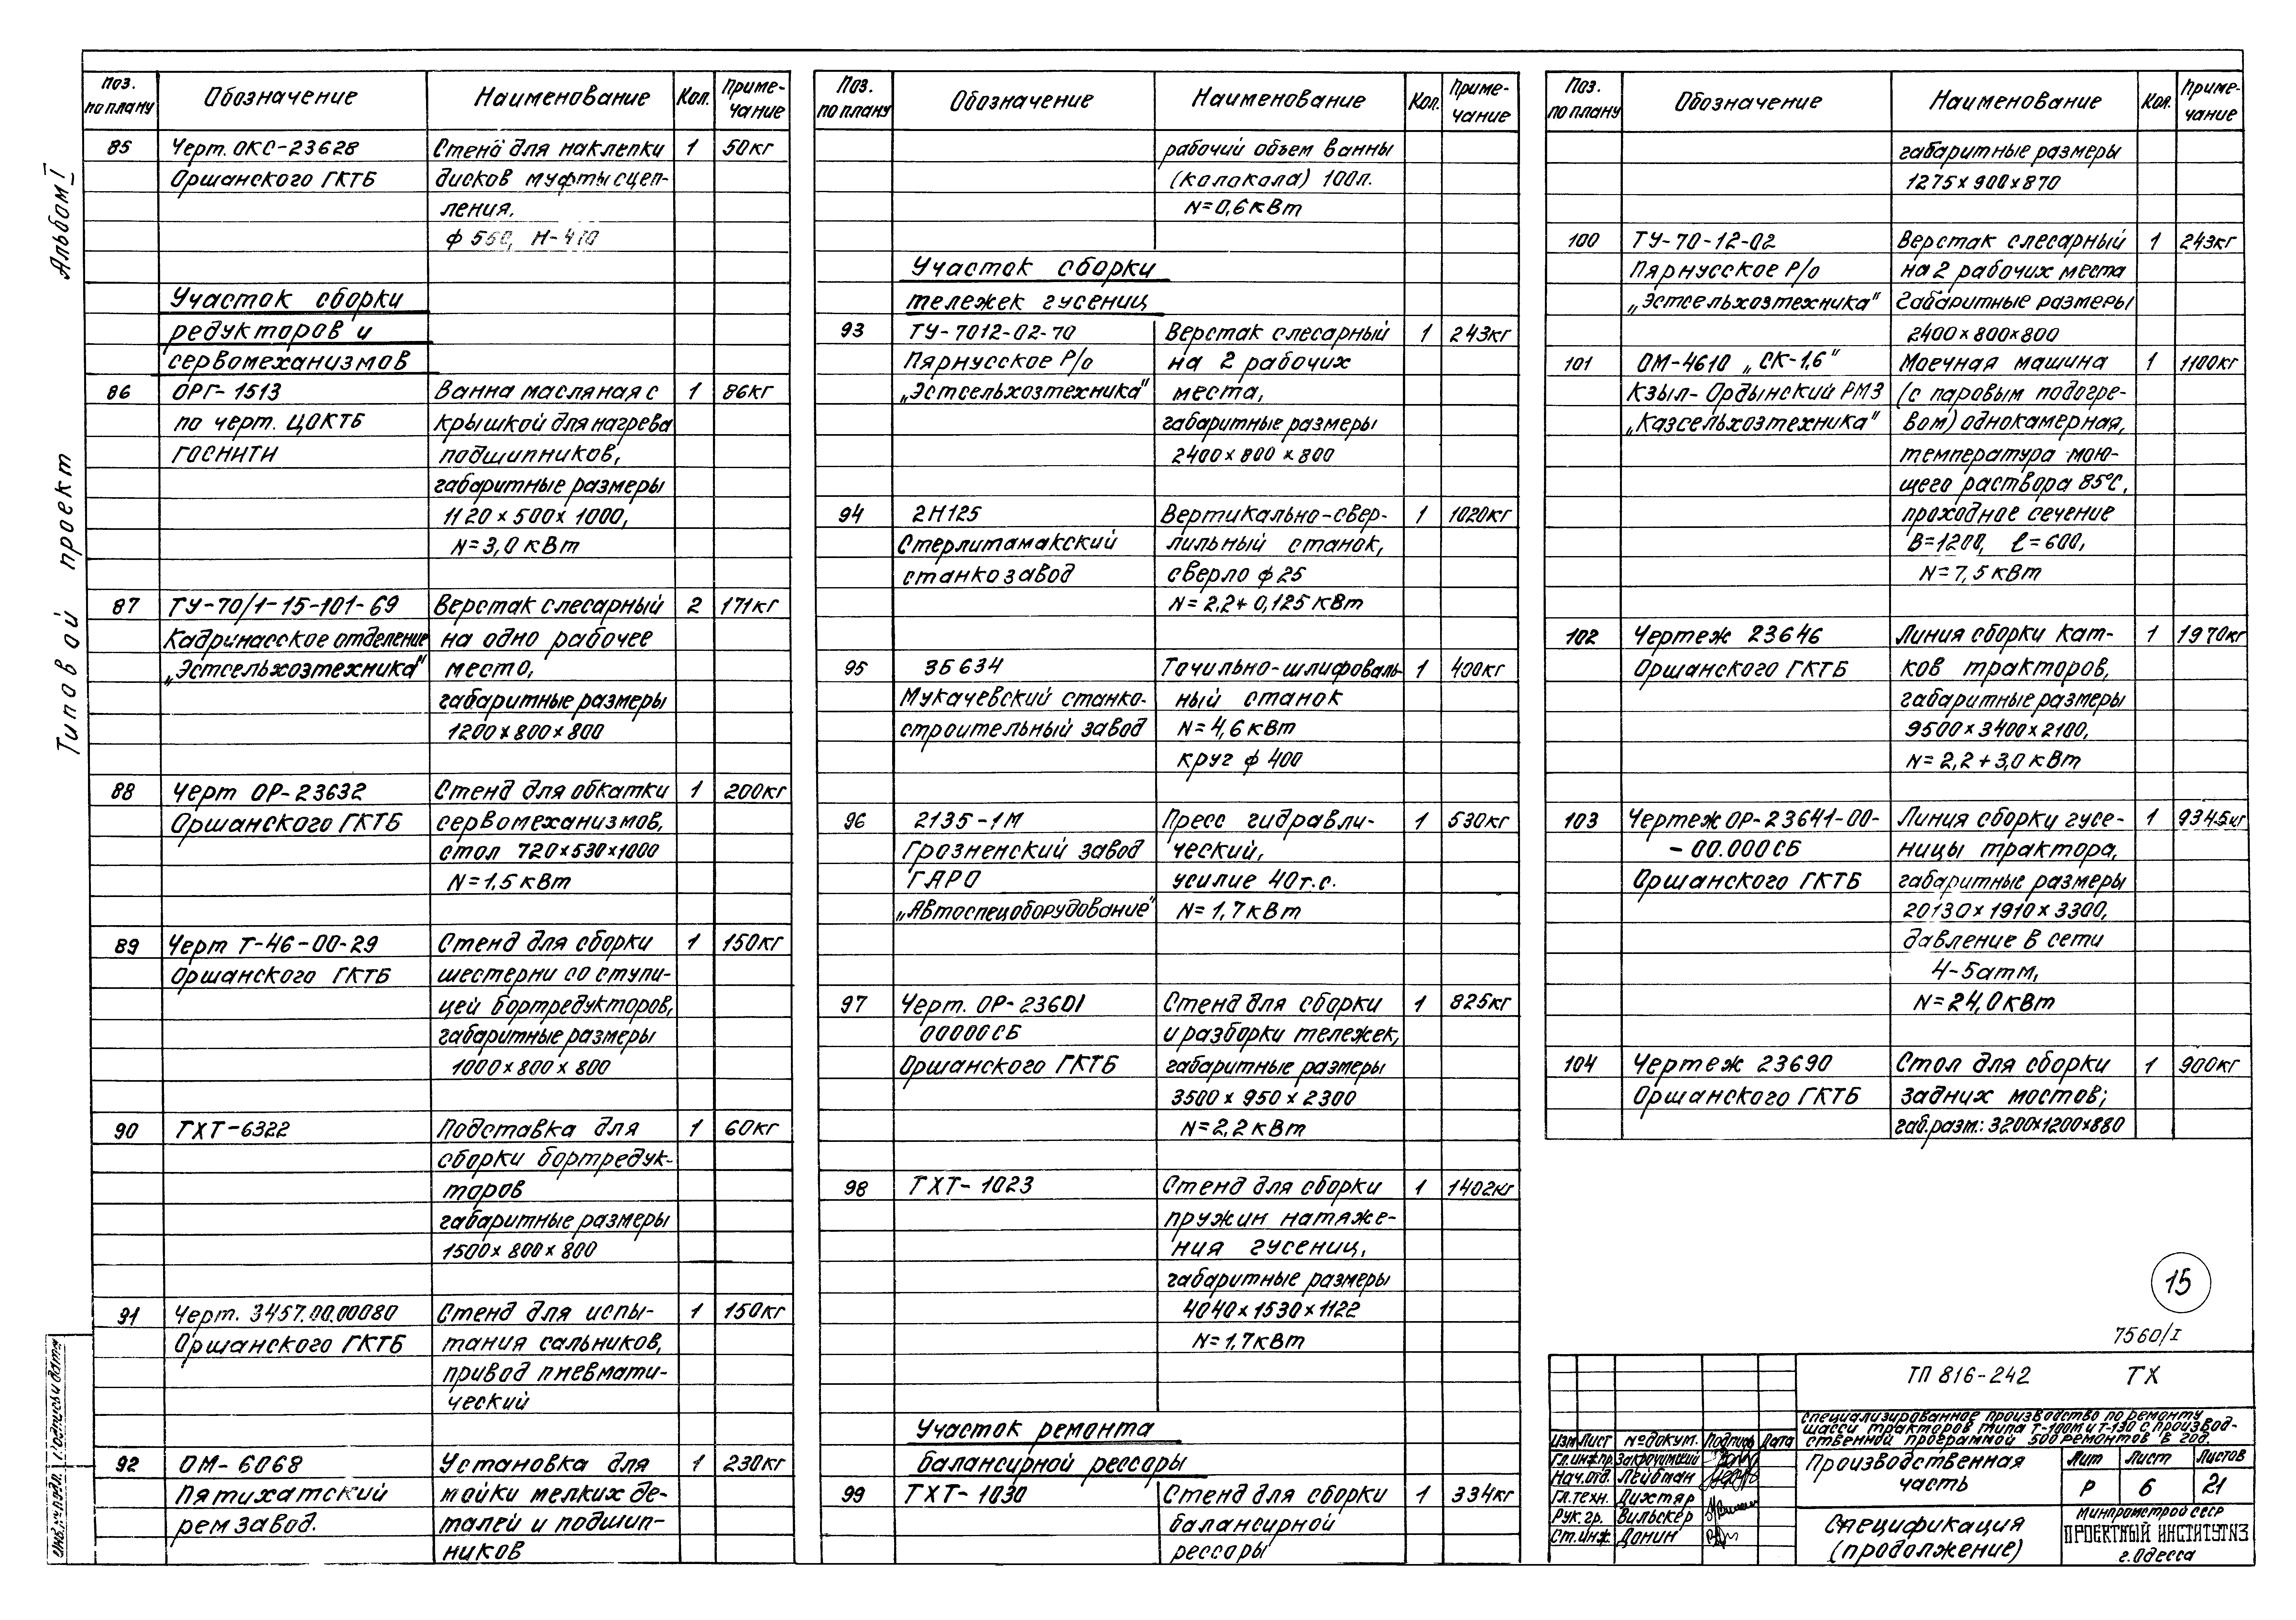 Альбом I
Типовой проект
Поз. по плану Обозначение Наименование Кол. Примечание
85 Черт. ОКС-23628 Стенд для наклепки 1 50кг
Оршанского ГКТБ дисков муфты сцеп-
ления.
Участок сборки
редукторов и
сервомеханизмов
86 ОРГ-1513 Ванна масляная с 1 86кг
по черт. ЦОКТБ крышкой для нагрева
ГОСНИТИ подшипников,
габаритные размеры
1120×500×1000,
N=3,0 кВт
87 ТУ-70/1-15-101-69 Верстак слесарный 2 171кг
Кадринасское отделение на одно рабочее
„Эстсельхозтехника" место,
габаритные размеры
1200×800×800
88 Черт ОР-23632 Стенд для обкатки 1 200кг
Оршанского ГКТБ сервомеханизмов,
стол 720×530×1000
N=1,5 кВт
89 Черт Т-46-00-29 Стенд для сборки 1 150кг
Оршанского ГКТБ шестерни со ступи-
цей бортредукторов,
габаритные размеры
1000×800×800
90 ТХТ-6322 Подставка для 1 60кг
сборки бортредук-
торов
габаритные размеры
1500×800×800
91 Черт. 3457.00.00080 Стенд для испы- 1 150кг
Оршанского ГКТБ тания сальников,
привод пневмати-
ческий
92 ОМ-6068 Установка для 1 230кг
Пятихатский мойки мелких де-
рем завод. талей и подшип-
ников
Поз. по плану Обозначение Наименование Кол. Примечание
рабочий объем ванны
(колокола) 100л.
N=0,6 кВт
Участок сборки
тележек гусениц
93 ТУ-7012-02-70 Верстак слесарный 1 243кг
Пярнусское Р/о на 2 рабочих
„Эстсельхозтехника" места,
габаритные размеры
2400×800×800
94 2Н125 Вертикально-свер- 1 1020кг
Стерлитамакский лильный станок,
станкозавод сверло ф25
N=2,2+0,125 кВт
95 3Б634 Точильно-шлифоваль- 1 400кг
Мукачевский станко- ный станок
строительный завод N=4,6 кВт
круг ф 400
96 2135-1М Пресс гидравли- 1 530кг
Грозненский завод ческий,
ГАРО усилие 40т.с.
„Автоспецоборудование" N=1,7 кВт
97 Черт. ОР-23601 Стенд для сборки 1 825кг
00000СБ и разборки тележек,
Оршанского ГКТБ габаритные размеры
3500×950×2300
N=2,2 кВт
98 ТХТ-1023 Стенд для сборки 1 1402кг
пружин натяже-
ния гусениц,
габаритные размеры
4040×1530×1122
N=1,7 кВт
Участок ремонта
балансирной рессоры
99 ТХТ-1030 Стенд для сборки 1 334кг
балансирной
рессоры
Поз. по плану Обозначение Наименование Кол. Примечание
габаритные размеры
1275×900×870
100 ТУ-70-12-02 Верстак слесарный 1 243кг
Пярнусское Р/о на 2 рабочих места
„Эстсельхозтехника" Габаритные размеры
2400×800×800
101 ОМ-4610 „СК-1,6" Моечная машина 1 1100кг
Кзыл-Ордынский РМЗ (с паровым подогре-
„Казсельхозтехника" вом) однокамерная,
температура мою-
щего раствора 85°С,
проходное сечение
В=1200, ℓ=600,
N=7,5 кВт
102 Чертеж 23646 Линия сборки кат- 1 1970кг
Оршанского ГКТБ ков тракторов,
габаритные размеры
9500×3400×2100,
N=2,2+3,0 кВт
103 Чертеж ОР-23641-00- Линия сборки гусе- 1 9345кг
-00.000СБ ницы трактора,
Оршанского ГКТБ габаритные размеры
20130×1910×3300,
давление в сети
4-5атм,
N=24,0 кВт
104 Чертеж 23690 Стол для сборки 1 900кг
Оршанского ГКТБ задних мостов;
габ.разм.: 3200×1200×880
15
7560/I
ТП 816-242 ТХ
Специализированное производство по ремонту
шасси тракторов типа Т-100М и Т-130 с производ-
ственной программой 500 ремонтов в год.
Изм Лист № докум. Подпись Дата
Гл.инж.пр.
Нач.отд. Лейбман
Гл.техн. Дихтяр
Рук.гр. Вильскер
Ст.инж. Донин
Производственная
часть
Лит Лист Листов
Р 6 21
Спецификация
(продолжение)
Минпромстрой СССР
ПРОЕКТНЫЙ ИНСТИТУТ №3
г. Одесса
Инв.№ подл. Подпись и дата